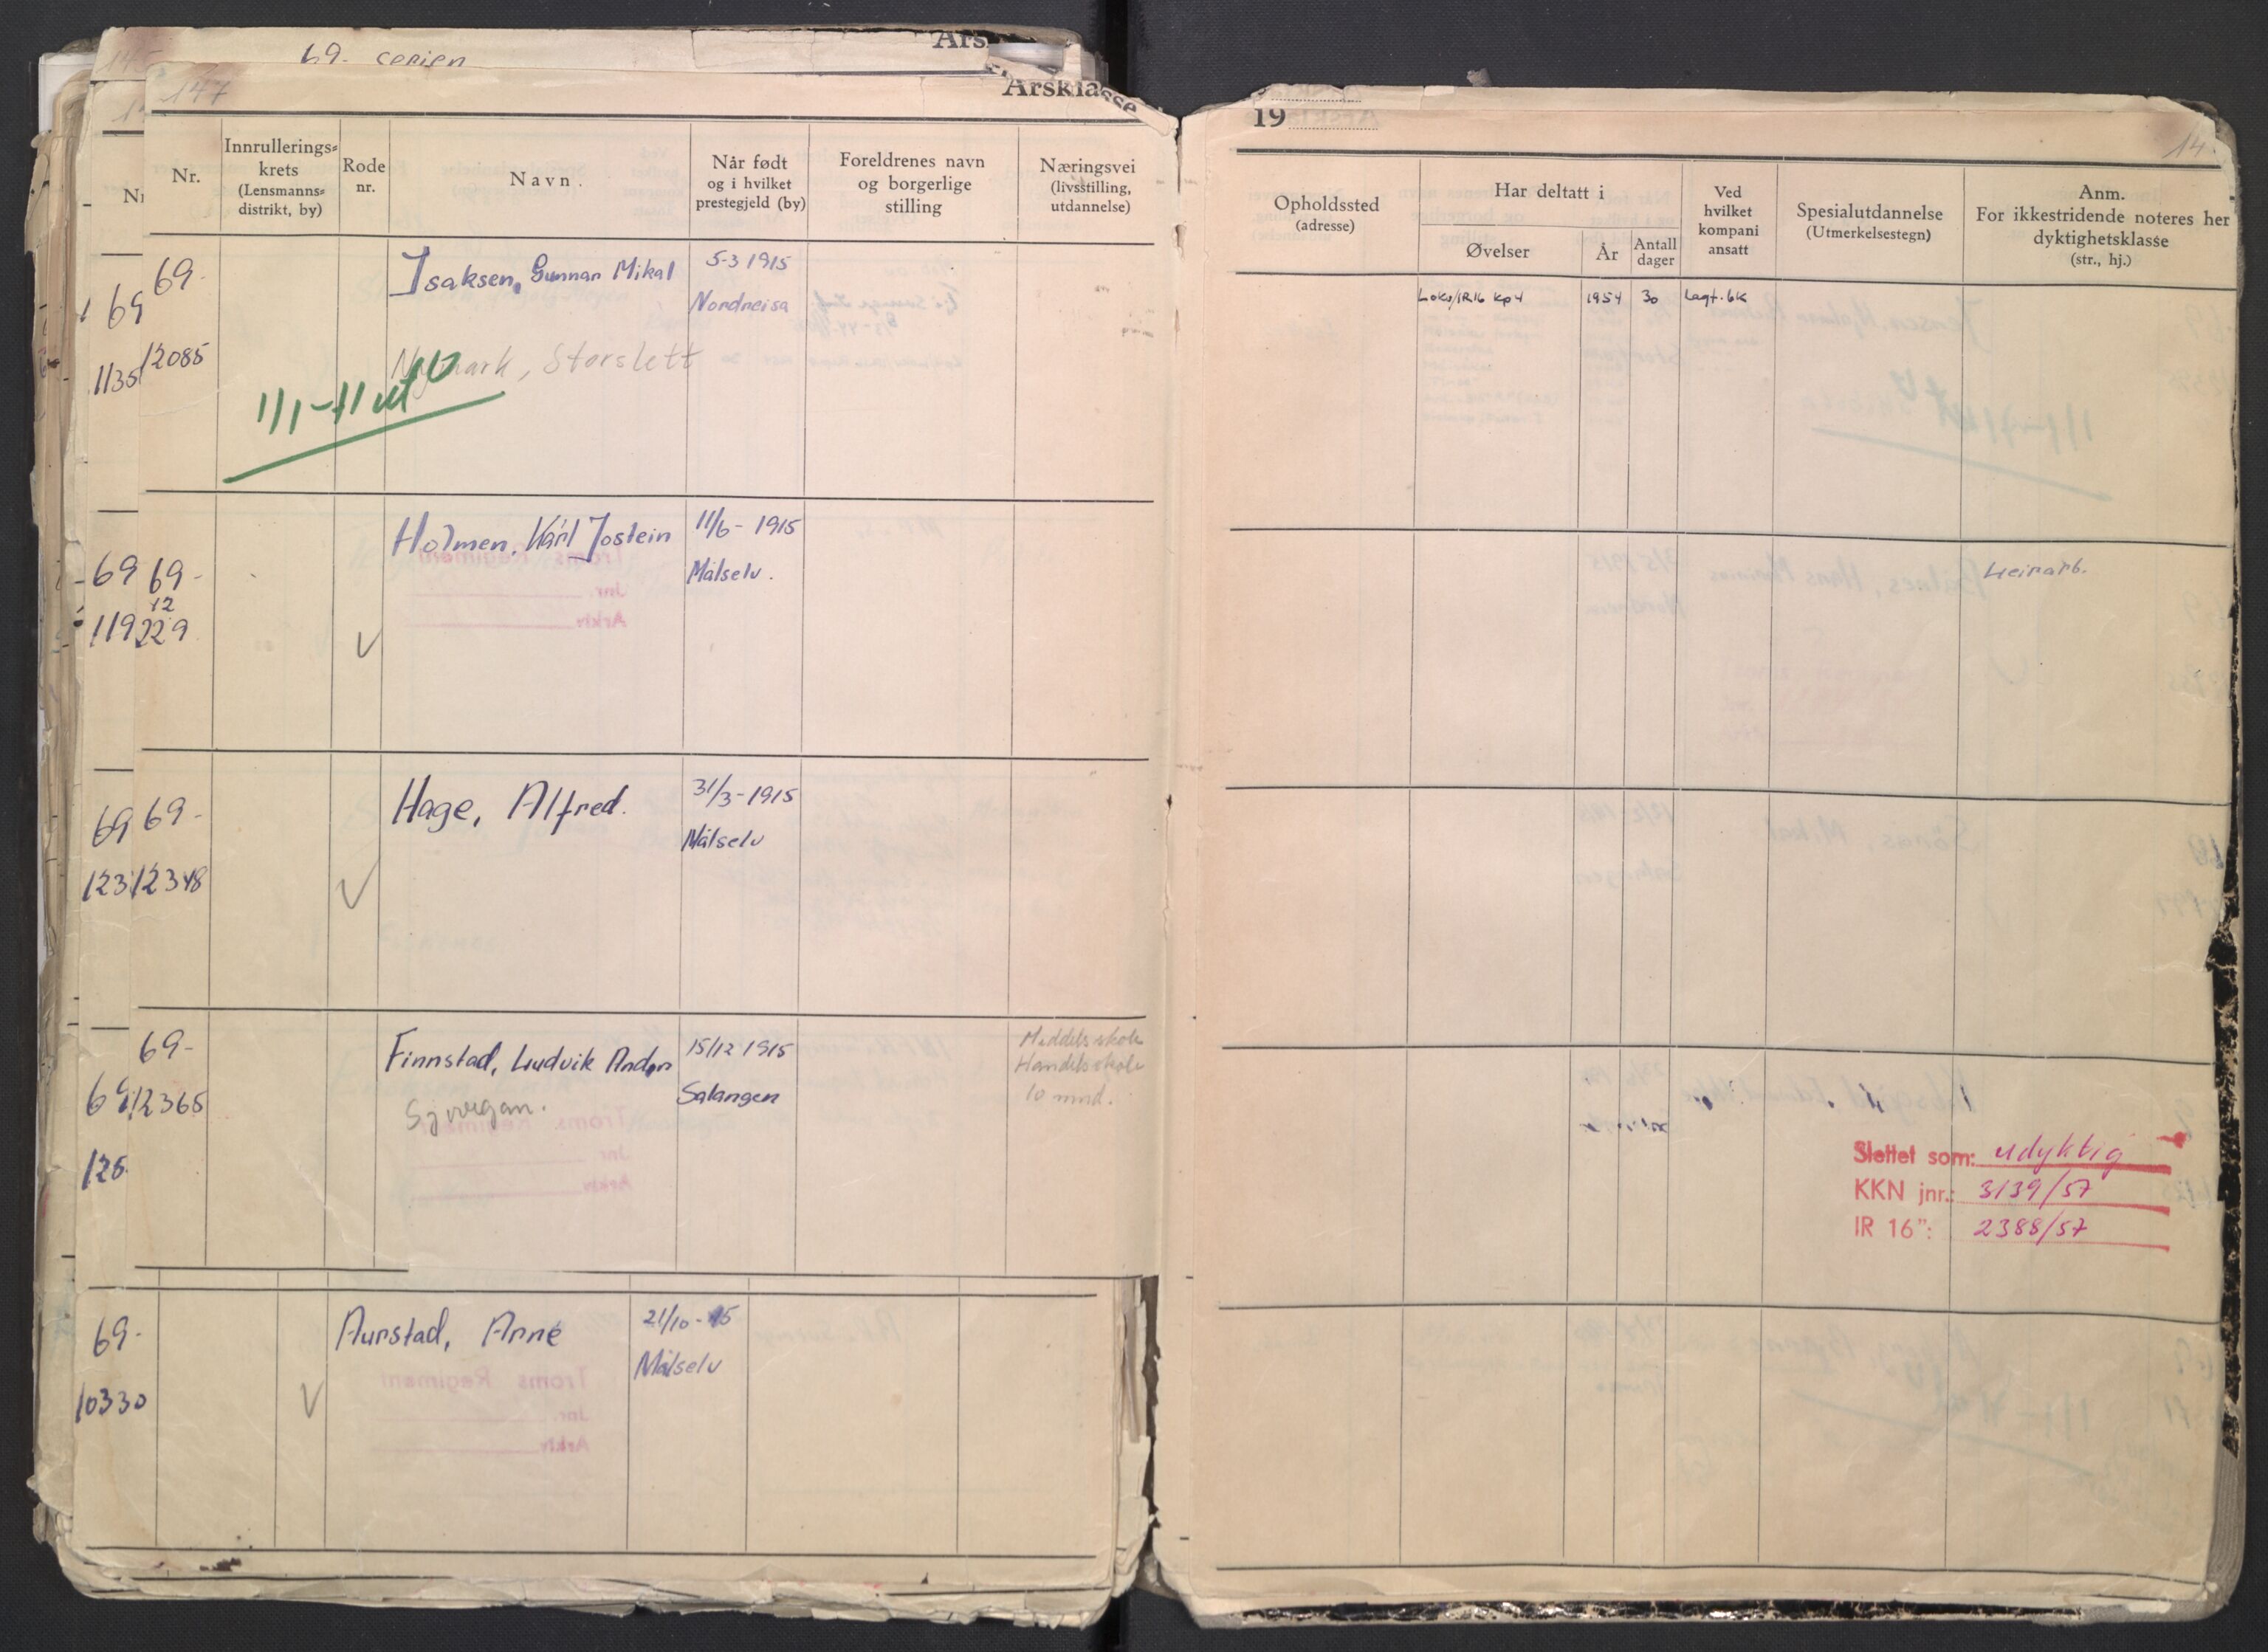 69- serien
Årsklasse
147
Nr.
Innrullerings-
krets
(Lensmanns-
distrikt, by)
Rode
nr.
Navn.
Når født
og i hvilket
prestegjeld (by)
Foreldrenes navn
og borgerlige
stilling
Næringsvei
(livsstilling,
utdannelse)
69-
12085
Isaksen, Gunnar Mikal
5-3 1915
Nordreisa
Nymark, Storslett
1/1-71 ut
69-
12
229
Holmen, Kårl Jostein
11/6- 1915
Målselv.
69-
12348
Hage, Alfred.
31/3-1915
Målselv
69-
12365
Finnstad, Ludvik Andor
Sjøvegan.
15/12 1915
Salangen
Middelsskole
Handelsskole
10 mnd.
69-
10330
Aunstad, Arne
21/10-15
Målselv
19
14
Opholdssted
(adresse)
Har deltatt i
Øvelser
År
Antall
dager
Ved
hvilket
kompani
ansatt
Spesialutdannelse
(Utmerkelsestegn)
Anm.
For ikkestridende noteres her
dyktighetsklasse
(str., hj.)
Loks/IR16 Kp 4
1954
30
Lagt. 6K
Leirarb.
Slettet som: udyktig
KKN jnr.: 3139/57
IR 16 ": 2388/57